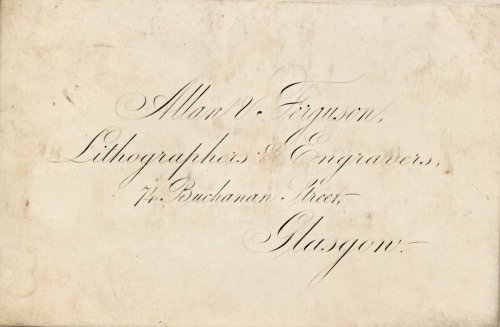 Allan & Ferguson,
Lithographers & Engravers,
74 Buchanan Street,
Glasgow.